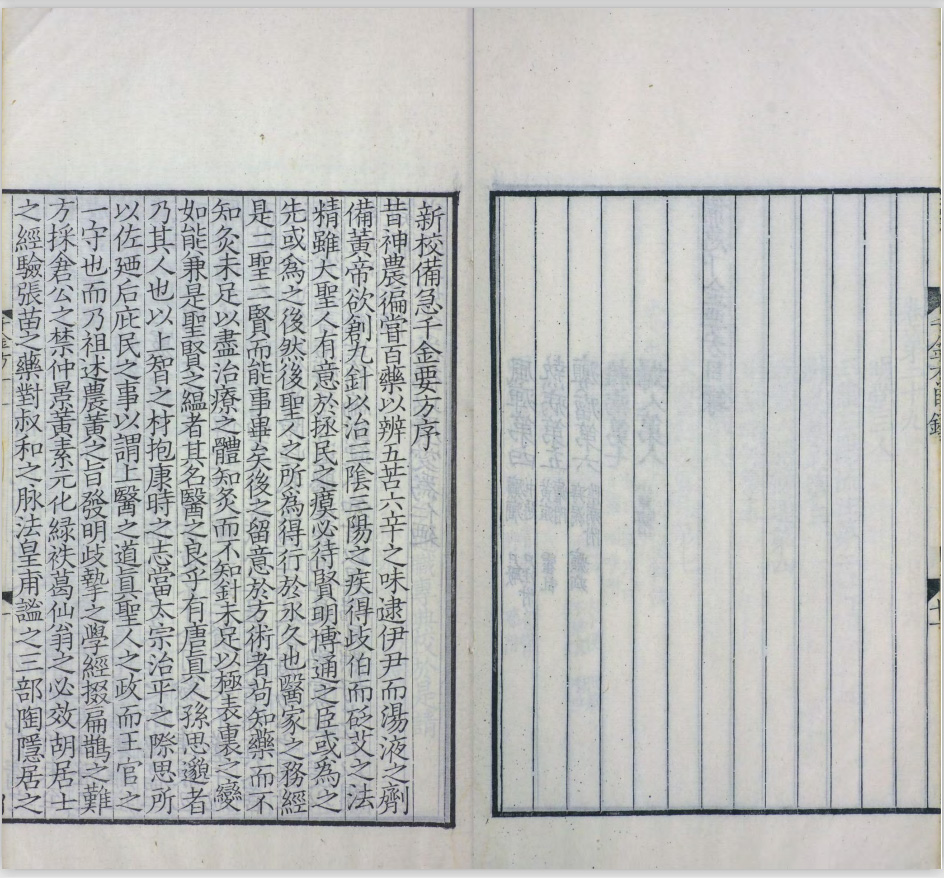 新校備急千金要方序
昔神農徧嘗百藥以辨五苦六辛之味逮伊尹而湯液之劑
備黃帝欲創九針以治三陰三陽之疾得歧伯而砭艾之法
精雖大聖人有意於拯民之瘼必待賢明博通之臣或為之
先或為之後然後聖人之所為得行於永久也醫家之務經
是二聖二賢而能事畢矣後之留意於方術者苟知藥而不
知灸未足以盡治療之體知灸而不知針未足以極表裏之變
如能兼是聖賢之緼者其名醫之良乎有唐真人孫思邈者
乃其人也以上智之材抱康時之志當太宗治平之際思所
以佐廼后庇民之事以謂上醫之道真聖人之政而王官之
一守也而乃祖述農黃之旨發明歧摯之學經掇扁鵲之難
方採倉公之禁仲景黃素元化緑袟葛仙翁之必效胡居士
之經驗張苗之藥對叔和之脉法皇甫謐之三部陶隱居之